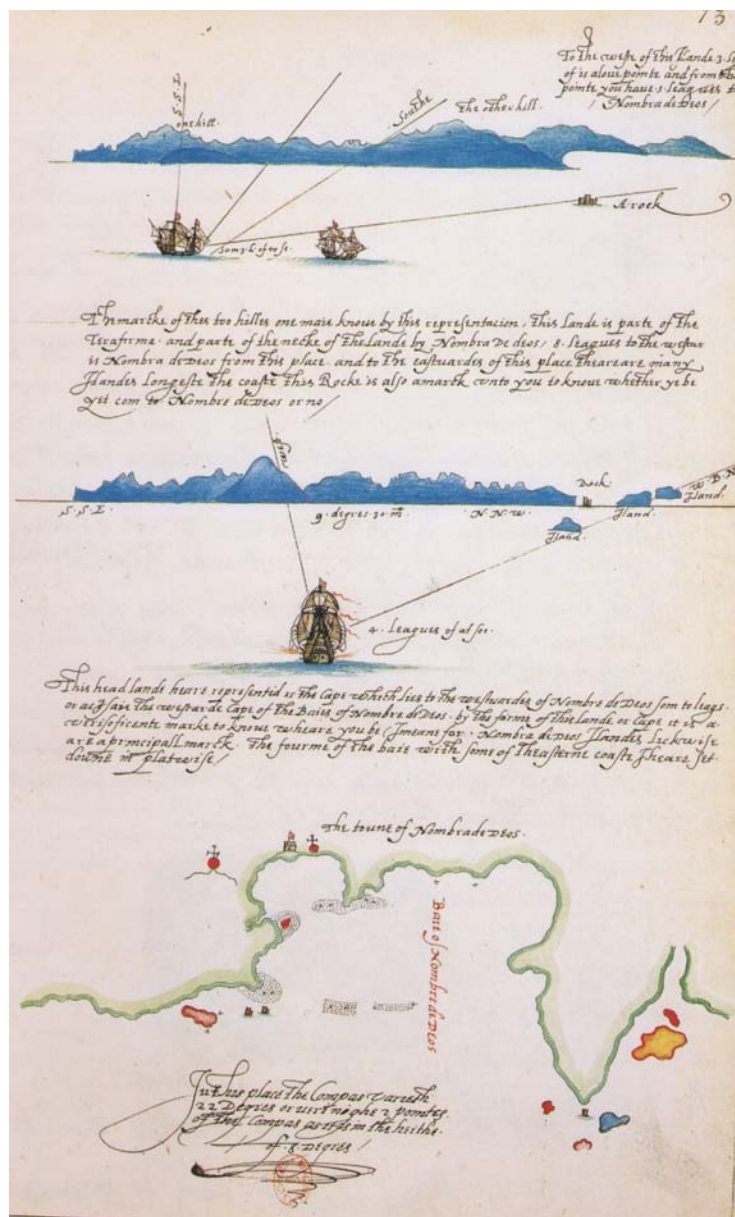 13
To the weste of this Ilande 3. le
of is a lowe pointe and from th
pointe you have 5 leagues to
Nombra de Deos
S. S. E
one hill.
Southe
The other hill.
A rock
The marke of thes too hilles one maie knowe by this representacion, this lande is parte of the
Tirafirme. and parte of the necke of the Lande by Nombra De deos / 8. leagues to the westar
is Nombra de Deos from this place. and to the eastwardes of this place theare are many
Ilandes Longeste the coaste this Rocke is also a marck unto you to knowe whether ye be
yet com to Nombre de Deos or no /
Rock
W. B. N
Iland.
Iland.
Iland.
S. S. E
9. degres. 30. m
N. N. W.
4. Leagues of at see.
This head lande heare representid is the Cape which lies to the westwardes of Nombre de Deos som to leags.
or as I saie the westarde Cape of the Baies of Nombre de Deos. by the forme of this Lande or Cape it is a
marke to know wheare you be I meane for. Nombra de Deos Ilandes Lickwise
are a principall marck. The fourme of the baie with some of Theasterne coaste I heare set
doune in platwise /
The toune of Nombra de Deos.
Baie of Nombre de Deos
In this place the Compas varieth
22 Degres or verī nighe 2 pointes.
of the Compas as it is in the heithe.
of 8 Degres /